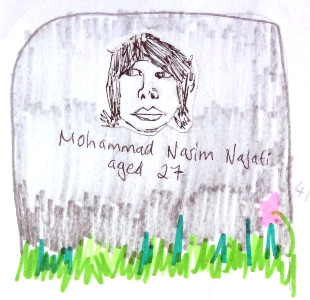 Mohammad Nasim Najafi
aged 27